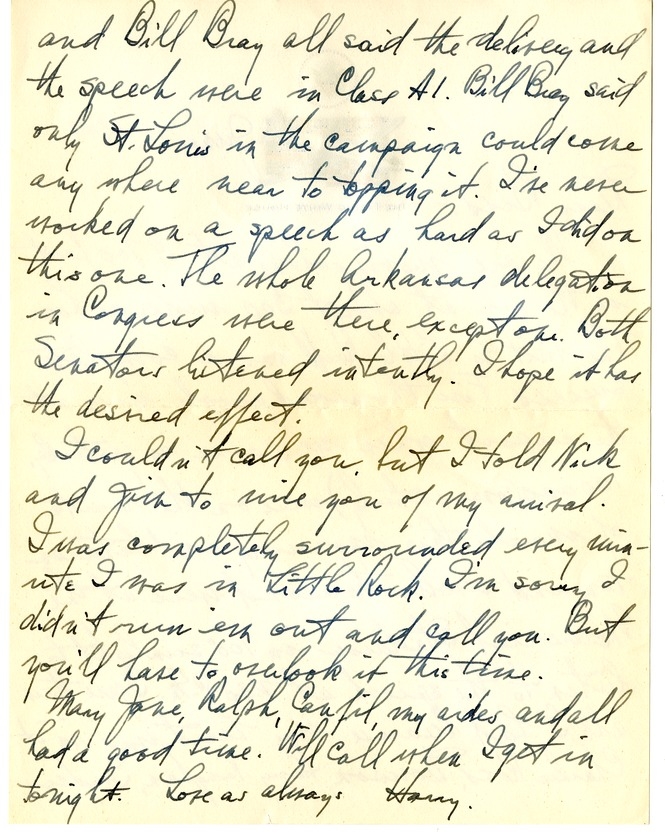 and Bill Bray all said the delivery and
the speech were in Class A1. Bill Bray said
only St. Louis in the campaign could come
any where near to topping it. I've never
worked on a speech as hard as I did on
this one. The whole Arkansas delegation
in Congress were there, except one. Both
Senators listened intently. I hope it has
the desired effect.
I couldn't call you, but I told Nick
and Jim to wire you of my arrival.
I was completely surrounded every min-
ute I was in Little Rock. I'm sorry I
didn't run 'em out and call you. But
you'll have to overlook it this time.
Mary Jane, Ralph, Canfil, my aides and all
had a good time. Will call when I get in
tonight. Love as always Harry.